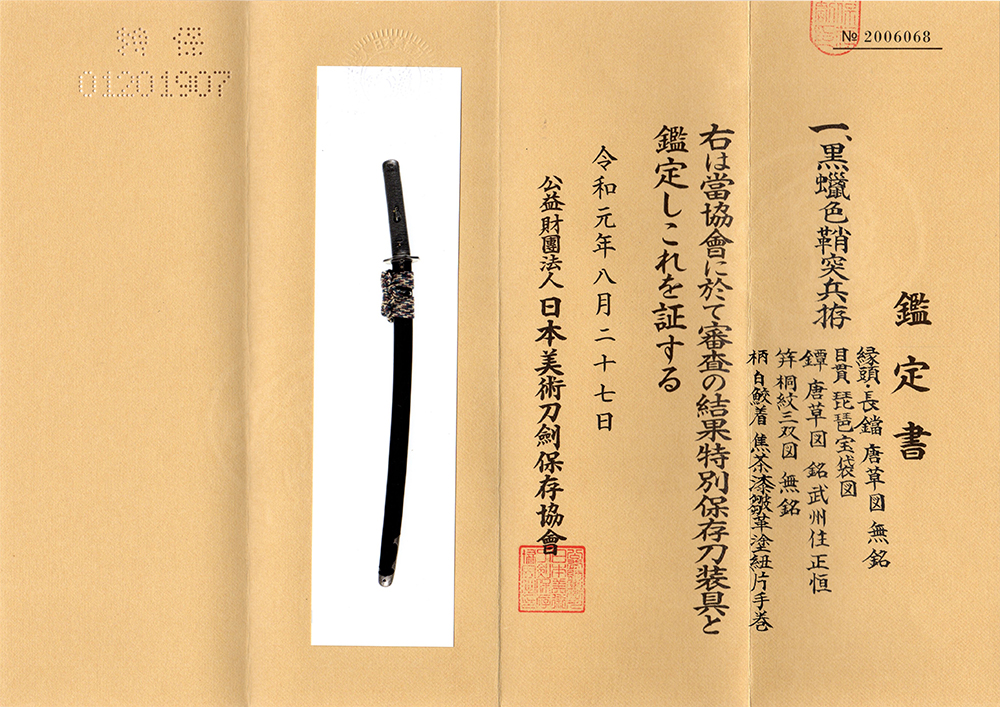 № 2006068
鑑定書
一、黒蠟色鞘突兵拵
縁頭・長鐺 唐草図 無銘
目貫 琵琶宝袋図
鐔 唐草図 銘 武州住正恒
笄 桐紋三双図 無銘
柄 白鮫着 焦茶漆皺革塗紐片手巻
右は當協會に於て審査の結果特別保存刀装具と
鑑定しこれを証する
令和元年八月二十七日
公益財團法人 日本美術刀劍保存協會
特保
01201907